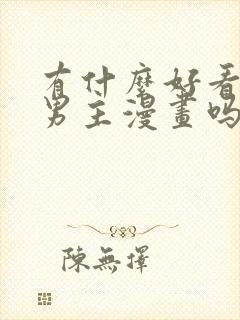 有什麼好看
男主漫畫嗎
陳無擇